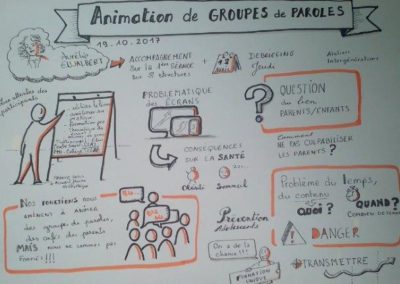 Animation de GROUPES de PAROLES
19.10.2017
Aurélie
ACCOMPAGNEMENT
Sur la 1ère SÉANCE
sur 8 structures
+
DEBRIEFING
Jeudi
Ateliers
Intergénérations
attentes des
participants
PROBLÉMATIQUE
des
ÉCRANS
QUESTION
du lien
PARENTS/ENFANTS
Comment
NE PAS CULPABILISER
LES PARENTS ?
CONSÉQUENCES
SUR LA SANTÉ
Obésité
Sommeil
Problème du Temps,
du contenu
QUOI ?
QUAND ?
DANGER
Nos fonctions nous
amènent à animer
des groupes de paroles,
des cafés des parents
MAIS nous ne sommes pas
Formés !!!
Prévention
Adolescents
On a de la
chance !!!
FORMATION
UNIQUE
TRANSMETTRE